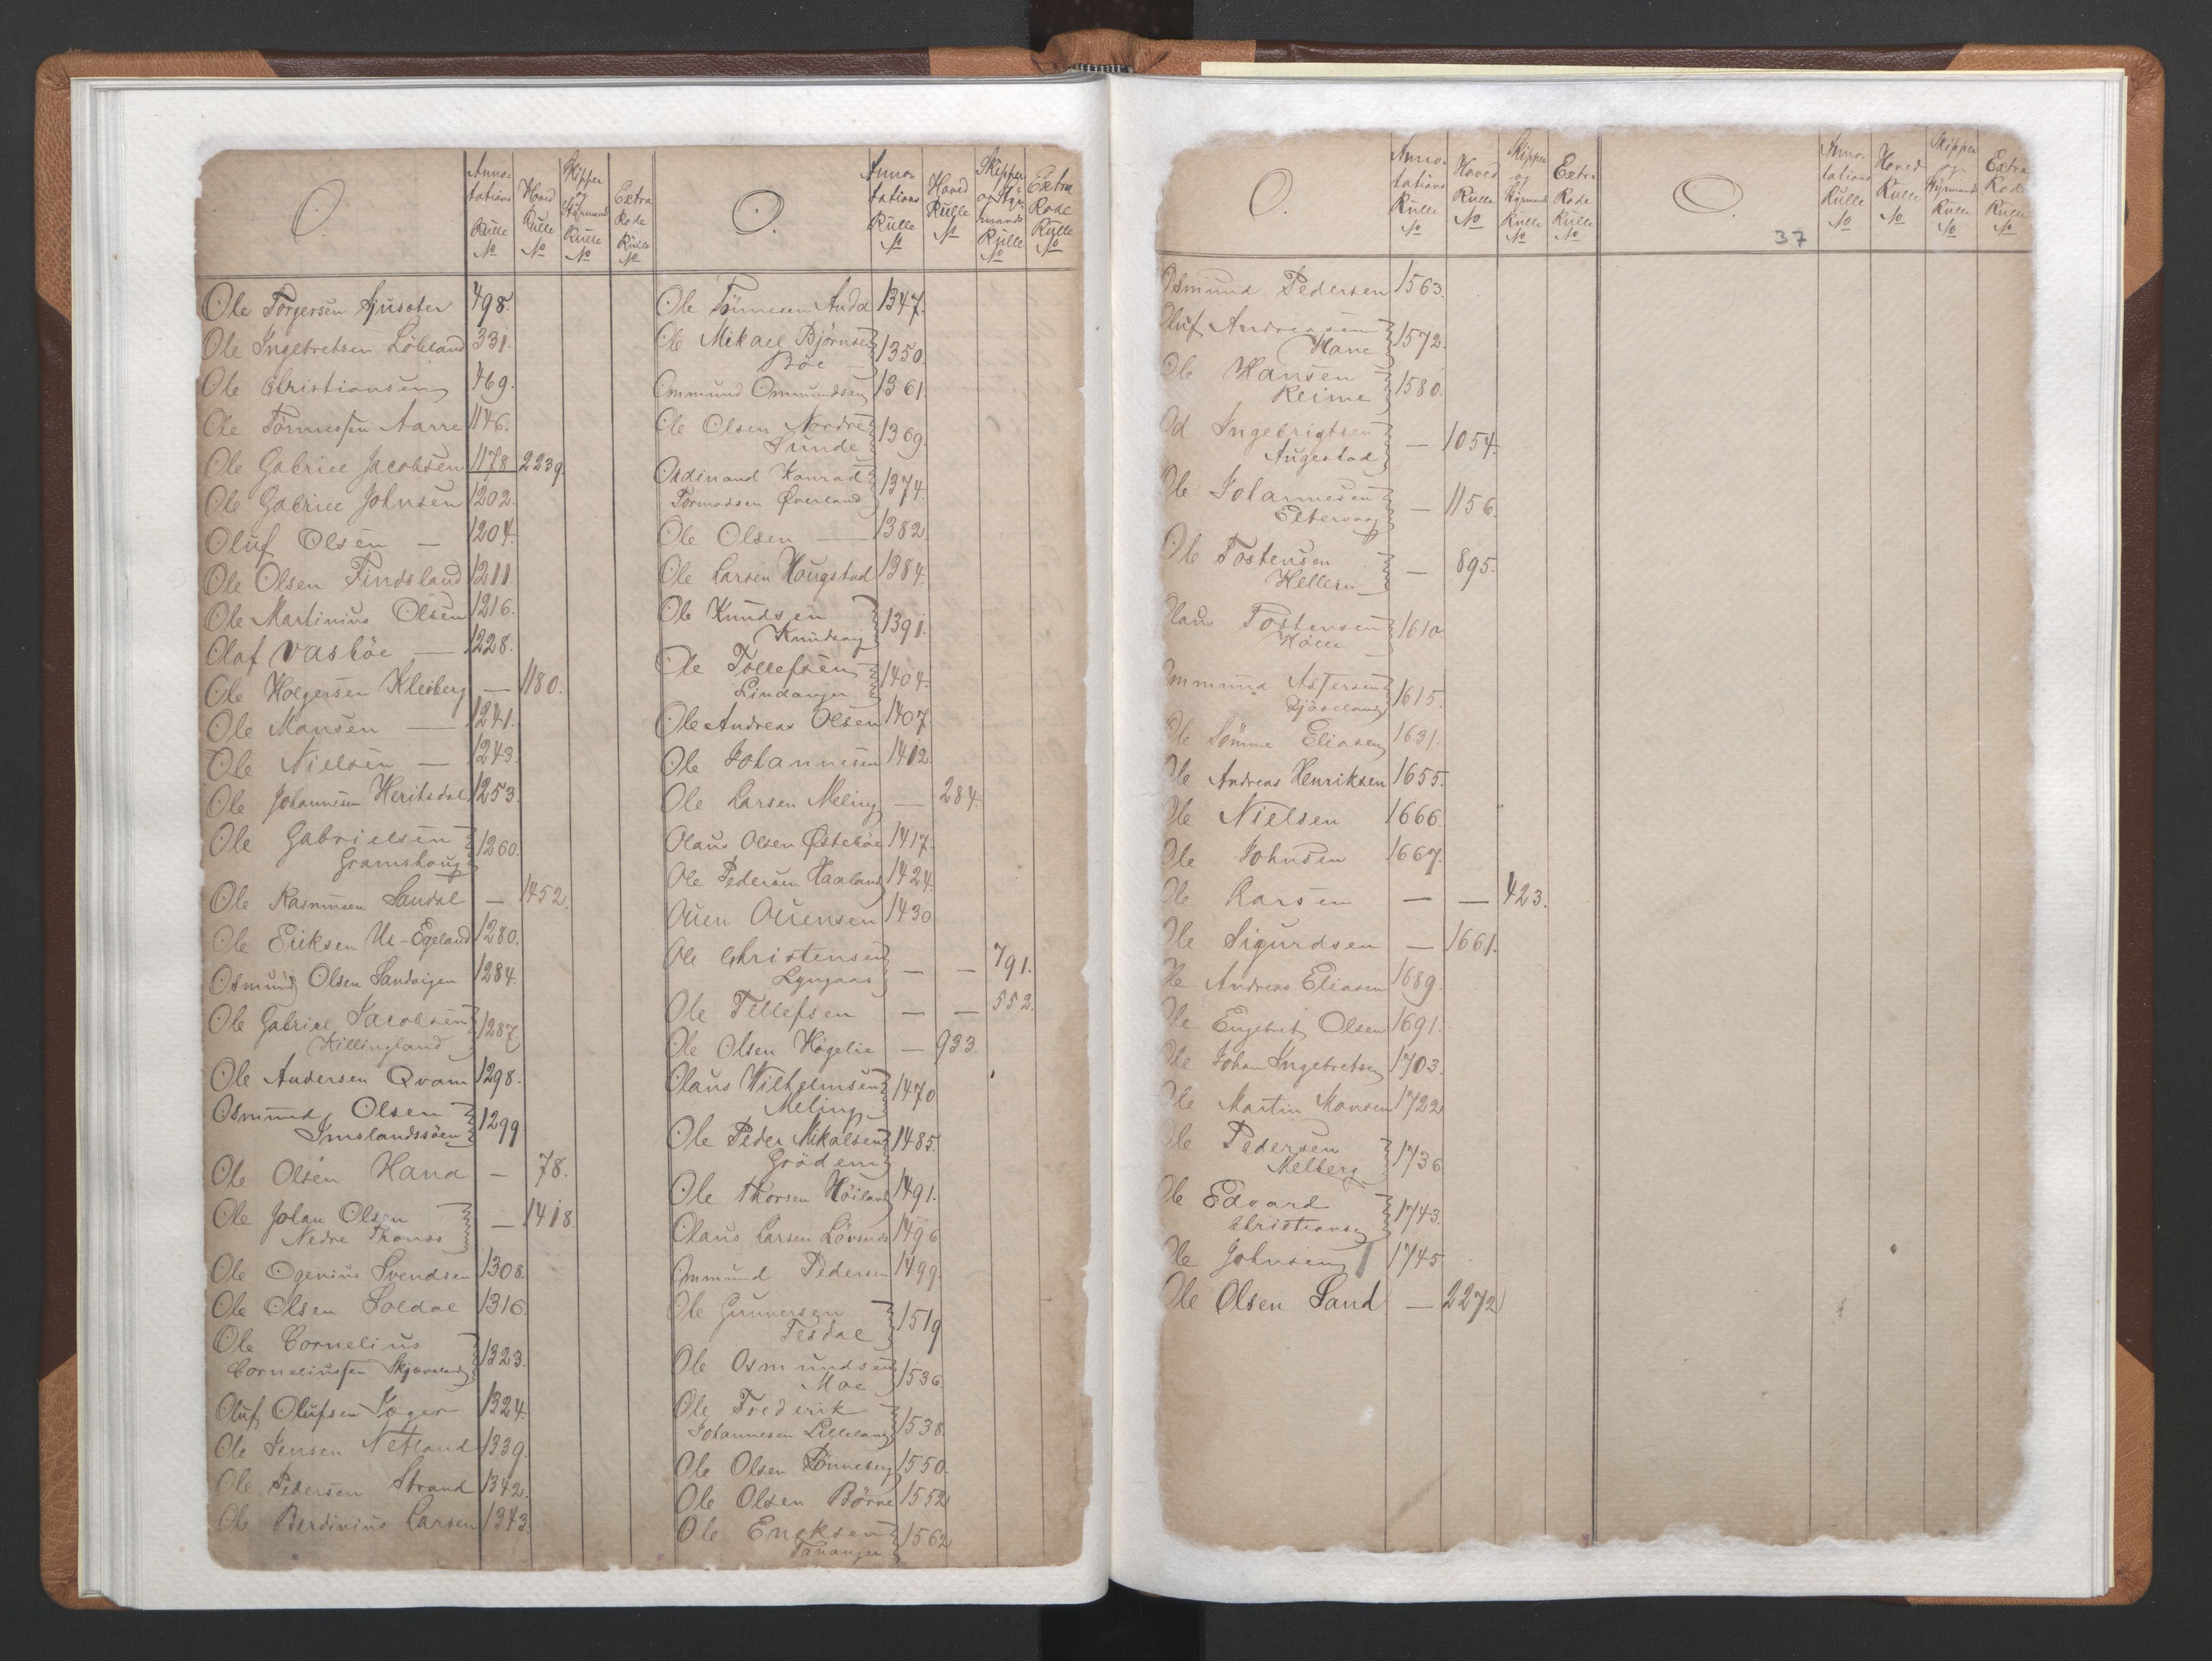 O.
Anno-
tations
Rulle
No
Hoved
Rulle
No
Skipper
og
Styrmand
Rulle
No
Extra
Rode
Rulle
No
Ole Torgersen 498.
Ole Ingebretsen Löland 331.
Ole Christiansen 469.
Ole Tönnessen Aarre 1146.
Ole Gabriel Jacobsen 1178 2239.
Ole Gabriel Johnsen 1202.
Oluf Olsen — 1204.
Ole Olsen Findsland 1211.
Ole Martinius Olsen 1216.
Olaf Vasböe — 1228.
Ole Holgersen Kleiberg — 1180.
Ole Monsen — 1241.
Ole Nielsen — 1243.
Ole Johannesen 1253.
Ole Gabrielsen
Gramshaug 1260.
Ole Rasmusen Sandal — 1452.
Ole Eriksen Us-Egeland 1280.
Osmund Olsen Sandvigen 1284.
Ole Gabriel Jacobsen
Killingland 1287.
Ole Andersen Qvam 1298.
Osmund Olsen
Imslandssöen 1299
Ole Olsen Hana — 78.
Ole Johan Olsen
Nedre — 1418.
Ole Ogenius Svendsen 1308.
Ole Olsen Soldal 1316.
Ole Cornelius
Corneliussen Skjæveland 1323.
Oluf Olufsen 1324.
Ole Jensen Netland 1339.
Ole Pedersen Strand 1342.
Ole Berdinius Larsen 1343
O.
Anno-
tations
Rulle
No
Hoved
Rulle
No
Skipper
og Styr
mands
Rulle
No
Extra
Rode
Rulle
No
Ole Tönnesen Anda 1347.
Ole Mikael Bjørnsen
Böe — 1350.
Ommund Ommundsen 1361.
Ole Olsen Nordre
Sunde 1369.
Ordinand Konrad
Tormodsen Øverland 1374.
Ole Olsen — 1382.
Ole Larsen Hougstad 1384.
Ole Knudsen
Knudsvig 1391.
Ole Tollefsen
Lindanger 1404.
Ole Andreas Olsen 1407
Ole Johannesen 1412.
Ole Larsen Meling — 284.
Olaus Olsen Østeböe 1417.
Ole Pedersen Haaland 1424.
Ouen Ouensen 1430
Ole Christensen
Lyngaas — — 791.
Ole Tellefsen — — 552.
Ole Olsen Högelie — 933.
Olaus Wilhelmsen
Meling 1470
Ole Peder Mikalsen
Grödem 1485.
Ole Thorsen Höiland 1491.
Olaus Larsen 1496
Ommund Pedersen 1499.
Ole Gunnersen
Tesdal 1519
Ole Osmundsen
Moe 1536.
Ole Frederik
Johannesen Lilleland 1538.
Ole Olsen 1550.
Ole Olsen Börve 1552
Ole Eneksen
Tananger 1562
O.
Anno-
tations
Rulle
No
Hoved
Rulle
No
Skipper
og
Styrmand
Rulle
No
Extra
Rode
Rulle
No
Osmund Pedersen 1563.
Oluf Andreasen
Hane 1572.
Ole Hansen
Reime 1580.
Od Ingebrigtsen
Augestad — 1054.
Ole Johannesen
Eltervaag — 1156.
Ole Tostensen
Helleren — 895.
Olaus Tostensen
Hölle 1610
Ommund
1615.
Ole Sömme Eliasen 1631.
Ole Andreas Henriksen 1655.
Ole Nielsen 1666.
Ole Johnsen 1667.
Ole Larsen — — 423.
Ole Sigurdsen — 1661.
Ole Andreas Eliasen 1689.
Ole Engebret Olsen 1691.
Ole Johan Ingebretsen 1703.
Ole Martin Monsen 1722
Ole Pedersen
Melberg 1736
Ole Edvard
Christiansen 1743.
Ole Johnsen 1745
Ole Olsen Sand — 2272
O.
37
Anno-
tations
Rulle
No
Hoved
Rulle
No
Skipper
og
Styrmand
Rulle
No
Extra
Rode
Rulle
No